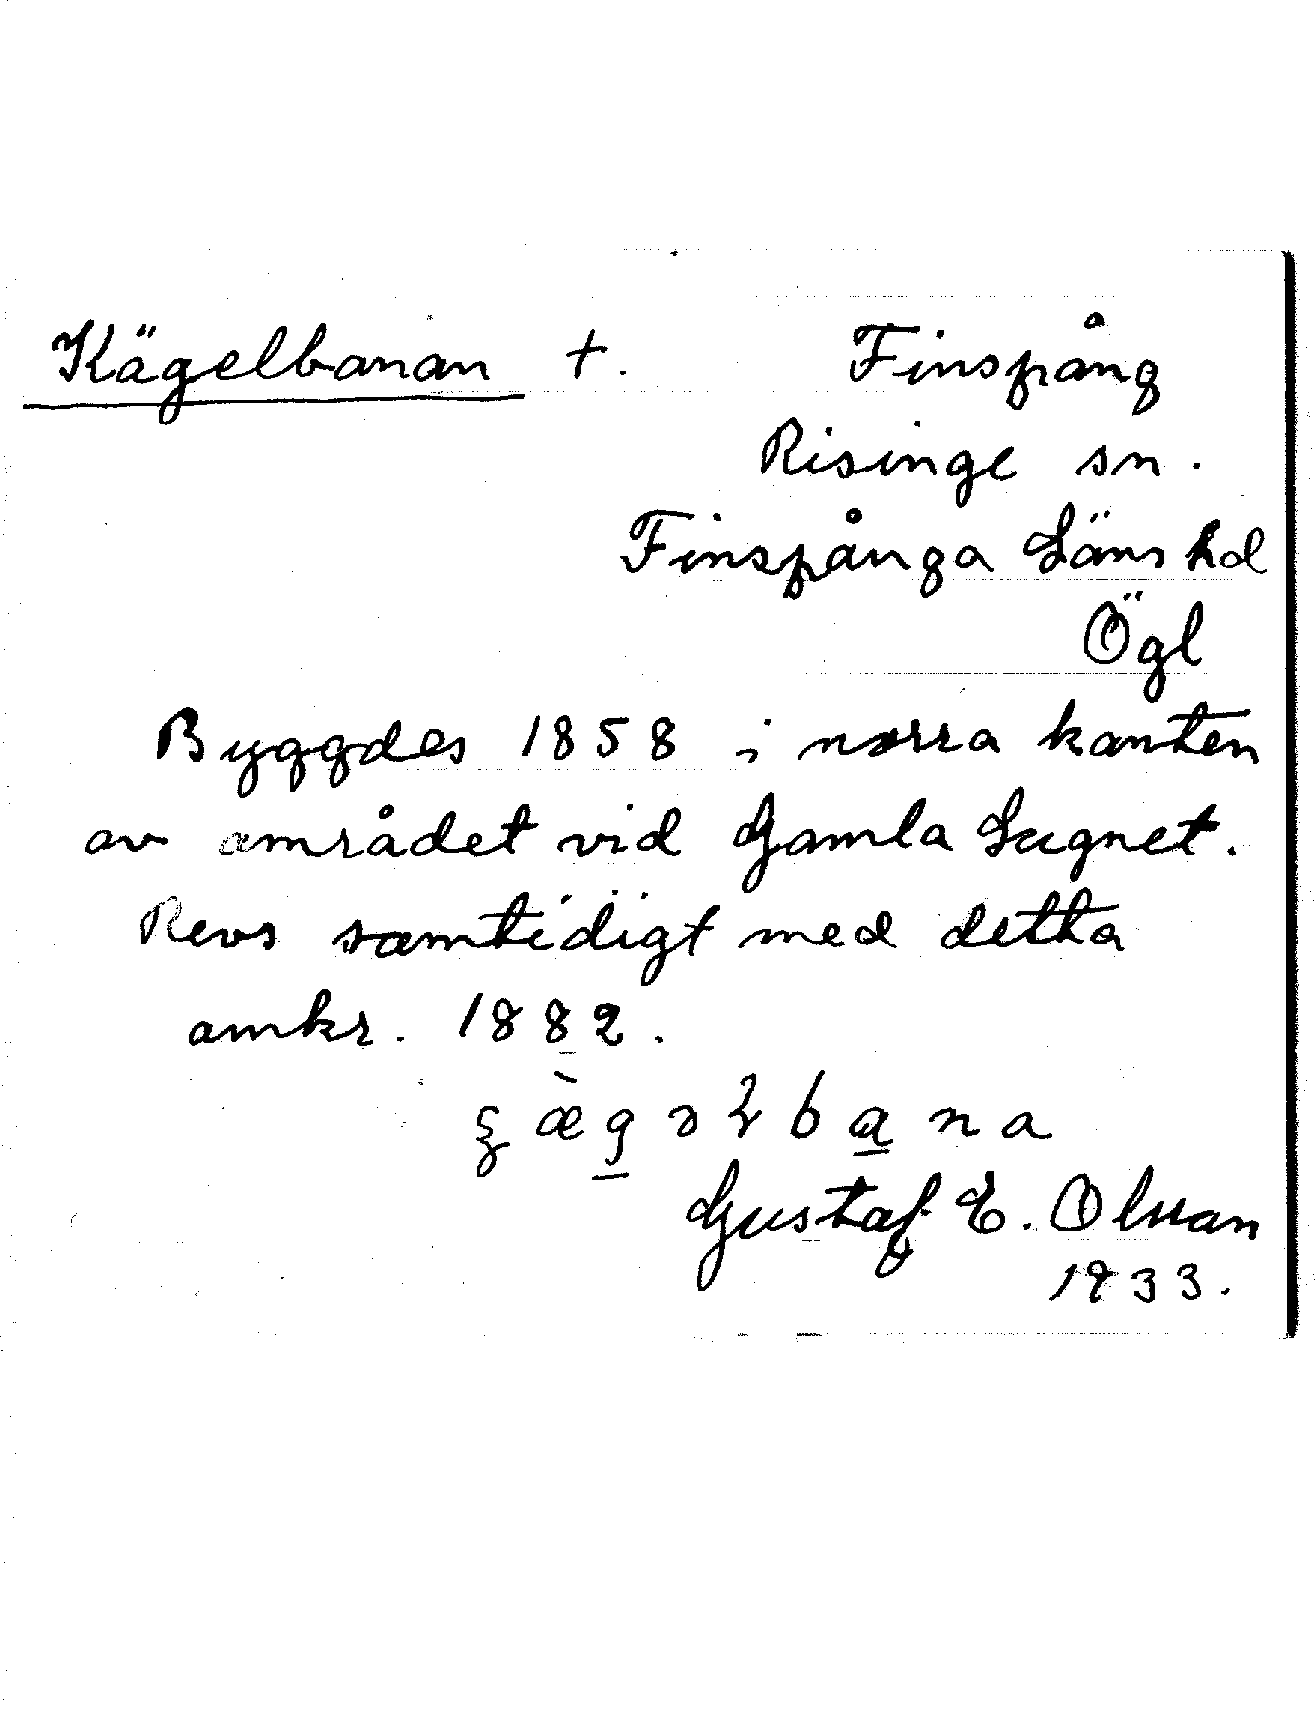 Kägelbanan †. Finspång
Risinge sn.
Finspånga Läns hd
Ögl
Byggdes 1858 i norra kanten
av området vid Gamla Lugnet.
Revs samtidigt med detta
omkr. 1882.
Gustaf E. Olsson
1933.